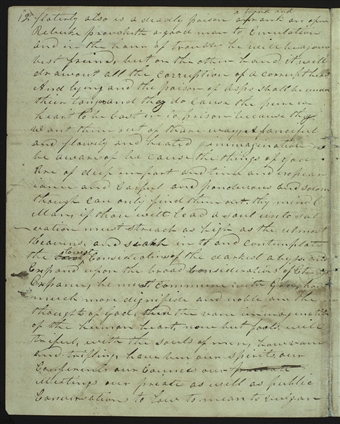 a fopish and
12 flatery also is a deadly poison a frank an open
Rebuke provoketh a good man to Emulation
and in the hour of trouble he will be your
best friend, but on the other hand it will
draw out all the corruption of a corrupt heart
And lying and the poison of asps shall be under
their tongue and they do cause the pure in
heart to be cast in to prison because they
want them out of their way, A fanciful
and flowely and heated immagination
be aware of be cause the things of god
Are of deep import and time and expe
rience and Carful and ponderous and solom
though can only find them out. thy mind
O Man, if thou wilt lead a soul unto sal
vation must streach as high as the utmost
Heavens, and search in to and contemplate
the lowest Considerations of the darkest abyss and
Expand upon the broad Considerations of Eternal
Expance, he must commune with God, how
much more dignifide and noble are the
thoughts of God, than the vain immaginations
of the human heart, none but fools will
trifel, with the souls of men, how vain
and trifling, have been our spirits, our
Conferences our Councils our
Meetings our private as well as public
Conversations to low to mean to vulgar